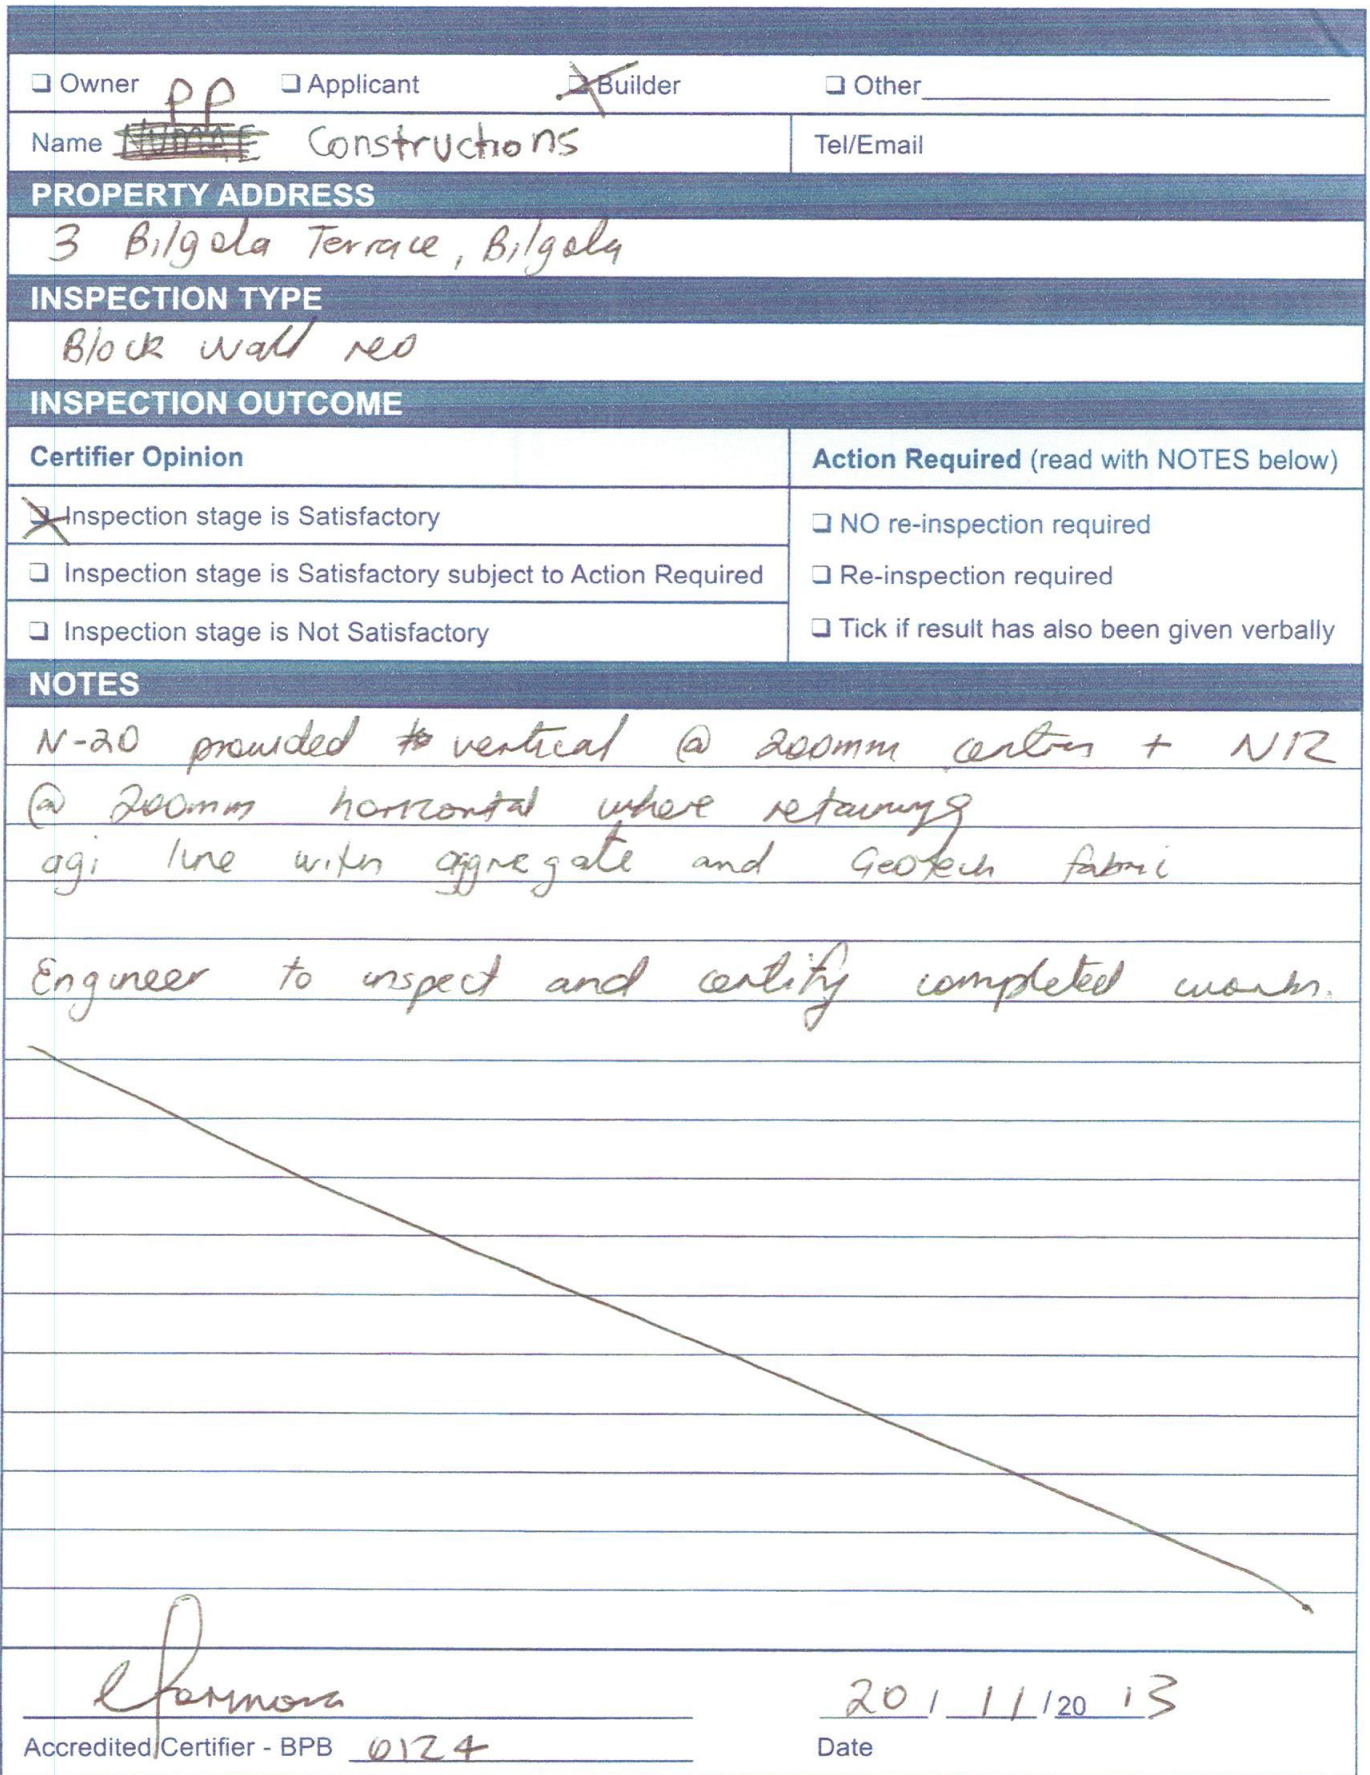 ❑ Owner ❑ Applicant ❑ Builder ❑ Other
PP
Name Constructions Tel/Email
PROPERTY ADDRESS
3 Bilgola Terrace, Bilgola
INSPECTION TYPE
Block wall reo
INSPECTION OUTCOME
Certifier Opinion Action Required (read with NOTES below)
❑ Inspection stage is Satisfactory ❑ NO re-inspection required
❑ Inspection stage is Satisfactory subject to Action Required ❑ Re-inspection required
❑ Inspection stage is Not Satisfactory ❑ Tick if result has also been given verbally
NOTES
N-20 provided vertical @ 200mm centres + N12
@ 200mm horizontal where retaining
agi line with aggregate and Geotech fabric
Engineer to inspect and certify completed works.
20 / 11 /20 13
Accredited Certifier - BPB 0124 Date